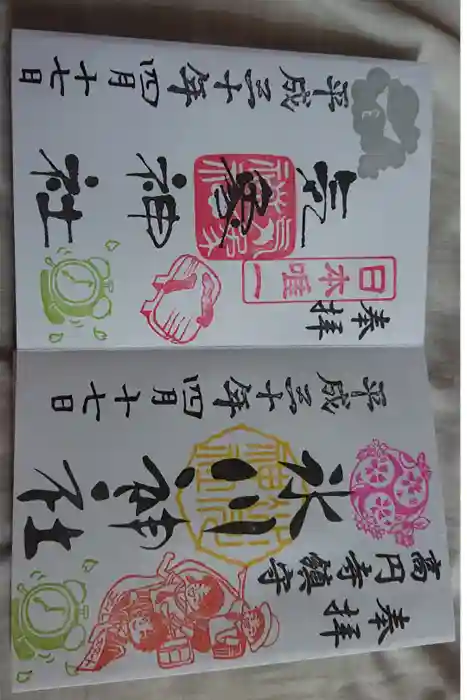 奉拝
日本唯一
気象神社
平成三十年四月十七日
奉拝
高円寺鎮守
氷川神社
平成三十年四月十七日